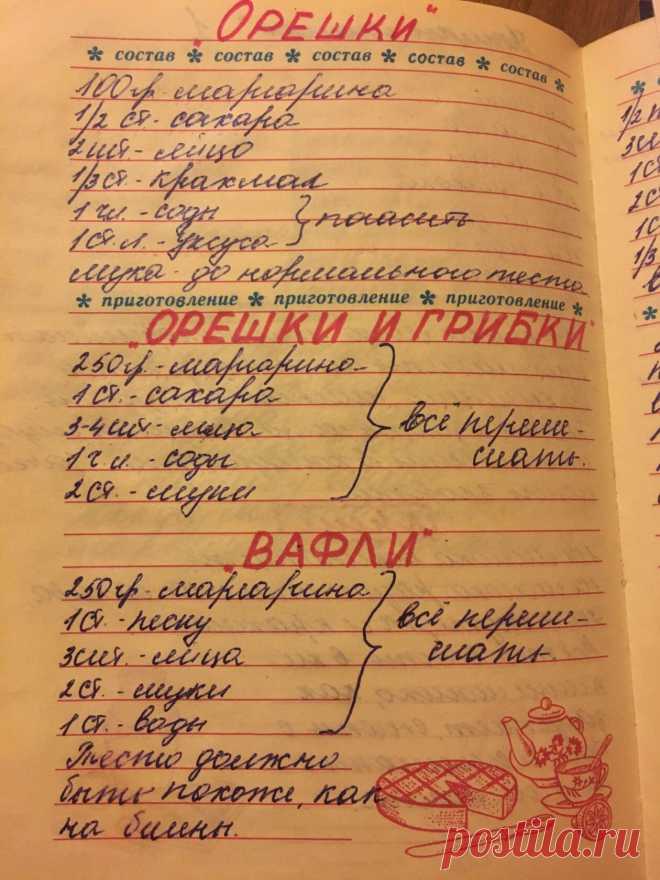 „ОРЕШКИ"
* состав * состав * состав * состав * состав *
100гр. маргарина
1/2 ст. сахара
2 шт. - яйцо
1/3 ст. - крахмал
1 ч.л. - соды } погасить
1 ст. л. - уксуса
мука - до нормального теста
* приготовление * приготовление * приготовление *
„ОРЕШКИ И ГРИБКИ"
250гр. - маргарина
1 ст. - сахара
3-4 шт. - яйца } всё переме-
1 ч. л. - соды шать.
2 ст. - муки
„ВАФЛИ"
250гр. - маргарина
1 ст. - песку } всё переме-
3 шт. - яйца шать.
2 ст. - муки
1 ст. - воды
Тесто должно
быть похоже, как
на блины.
postila.ru